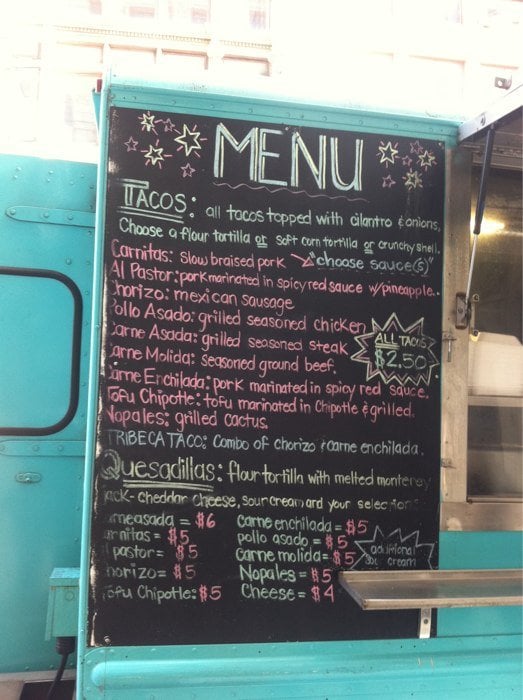 MENU
TACOS: all tacos topped with cilantro & onions,
Choose a flour tortilla or soft corn tortilla or crunchy shell,
Carnitas: Slow braised pork "choose sauce(s)"
Al Pastor: pork marinated in spicy red sauce w/pineapple.
Chorizo: mexican sausage
Pollo Asado: grilled seasoned chicken
Carne Asada: grilled seasoned steak
ALL TACOS
$2.50
Carne Molida: seasoned ground beef.
Carne Enchilada: pork marinated in spicy red sauce.
Tofu Chipotle: tofu marinated in Chipotle & grilled.
Nopales: grilled cactus.
TRIBECA TACO: Combo of chorizo & carne enchilada.
Quesadillas: flour tortilla with melted monterey
jack- cheddar cheese, sour cream and your selection
carne asada = $6 Carne enchilada = $5
carnitas = $5 pollo asado = $5
al pastor = $5 Carne molida = $5
chorizo = $5 Nopales = $5
Tofu Chipotle: $5 Cheese = $4
additional
cream